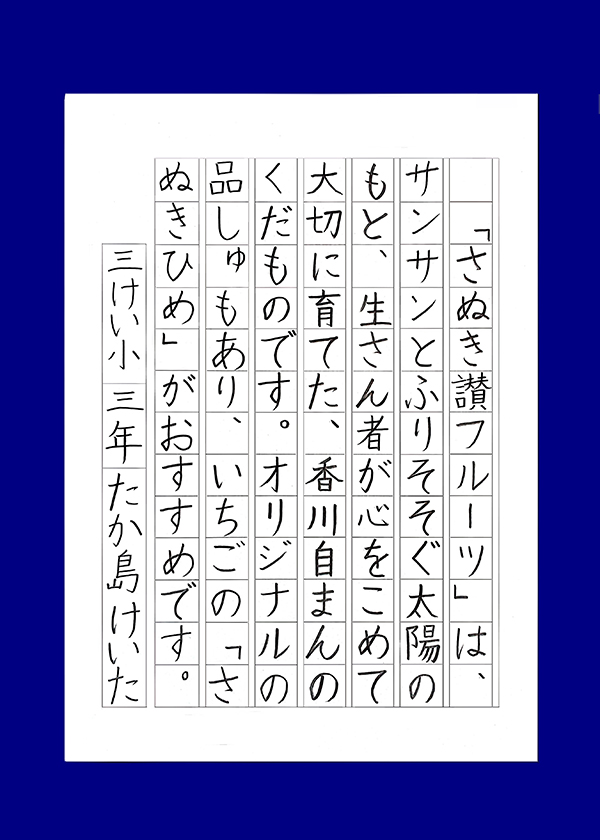 「さぬき讃フルーツ」は、
サンサンとふりそそぐ太陽の
もと、生さん者が心をこめて
大切に育てた、香川自まんの
くだものです。オリジナルの
品しゅもあり、いちごの「さ
ぬきひめ」がおすすめです。
三けい小 三年 たか島けいた